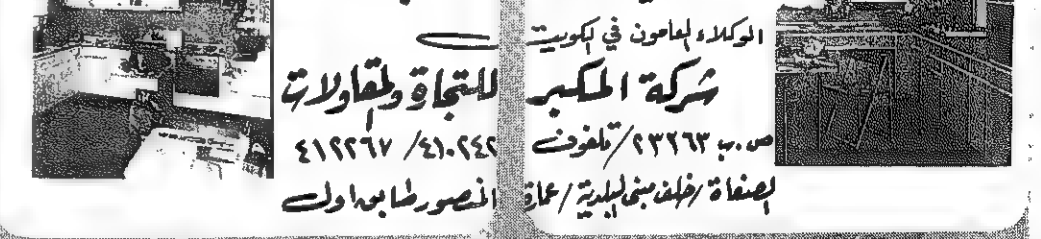 الوكلاء العامون في الكويت
شركة المكبر للتجارة والمقاولات
ص.ب ٢٣٢٦٣/تلفون ٤١٠٢٤٢ /٤١٢٢٦٧
الصفاة /خلف مبنى البلدية /عمارة المنصور طابق اول